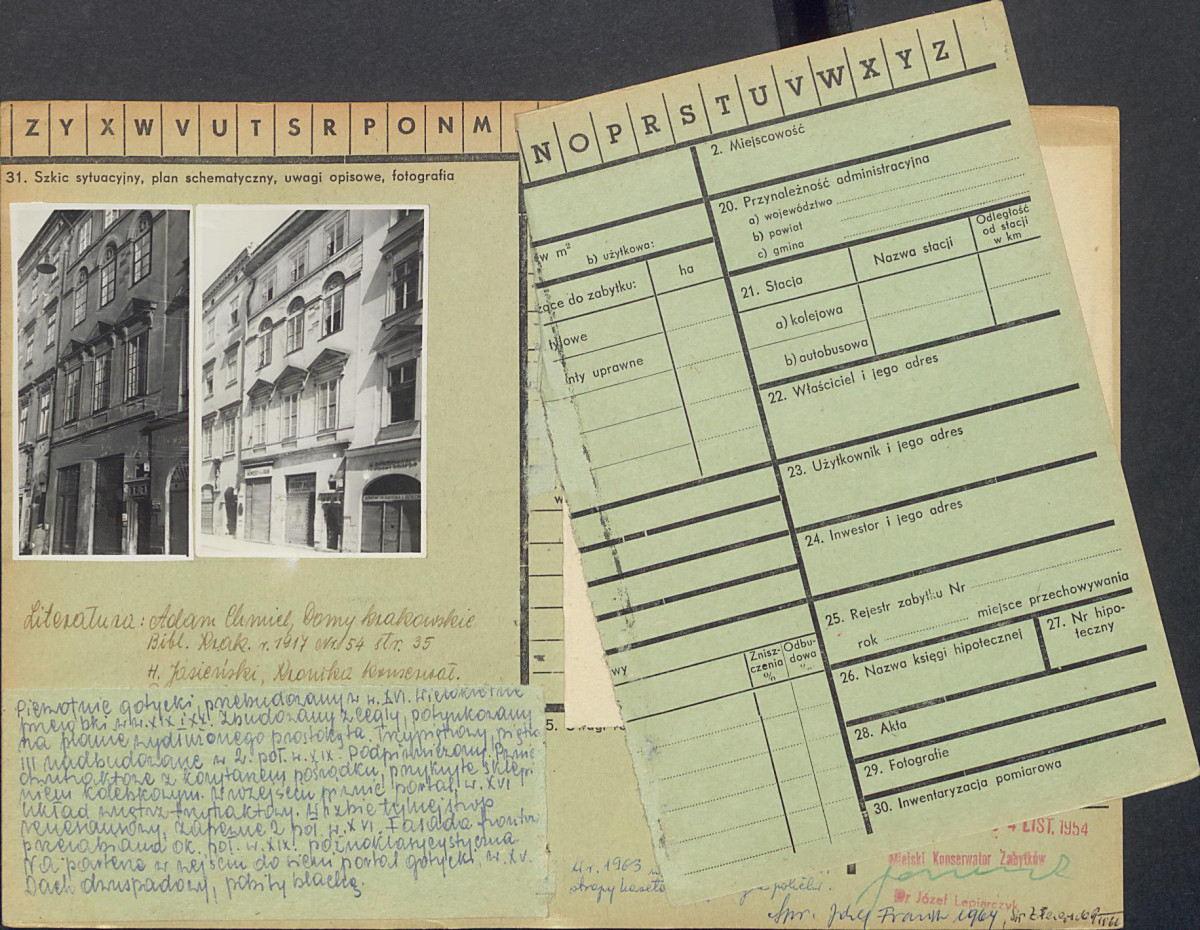 Z Y X W V U T S R P O N M
31. Szkic sytuacyjny, plan schematyczny, uwagi opisowe, fotografia
Literatura: Adam Chmiel, Domy krakowskie
Bibl. Krak. r. 1917 Nr. 54 str. 35
H. Jasieński, Kronika konserwat.
Pierwotnie gotycki, przebudowany w w. XVI. Wielokrotne
przeróbki w w. XIX i XX. Zbudowany z cegły, potynkowany
na planie wydłużonego prostokąta. Trzypiętrowy, piętro
III nadbudowane w 2. poł. w. XIX. Podpiwniczony.
dwutraktowe z korytarzem pośrodku, przykryte sklepi-
niem kolebkowym. W wejściu portal w. XVI
Układ wnętrz trzytraktowy. W izbie tylnej strop
renesansowy, zapewne 2 poł. w. XVI. Fasada
przerabiana ok. poł. w. XIX. późnoklasycystyczna
Na parterze w wejściu do sieni portal gotycki w. XV.
Dach dwuspadowy, pobity blachą.
N O P R S T U V W X Y Z
2. Miejscowość
20. Przynależność administracyjna
a) województwo
b) powiat
c) gmina
w m² b) użytkowa:
ha
żące do zabytku:
yłowe
nty uprawne
21. Stacja
Nazwa stacji
Odległość
od stacji
w km
a) kolejowa
b) autobusowa
22. Właściciel i jego adres
23. Użytkownik i jego adres
24. Inwestor i jego adres
25. Rejestr zabytku Nr
rok miejsce przechowywania
26. Nazwa księgi hipotecznej
27. Nr hipo-
teczny
28. Akta
29. Fotografie
30. Inwentaryzacja pomiarowa
wy
Znisz-
czenia
%
Odbu-
dowa
%
w
5.
4 LIST. 1954
Miejski Konserwator Zabytków
Dr Józef Lepiarczyk
W r. 1963
stropy
Spr. Józef Frazik 1964